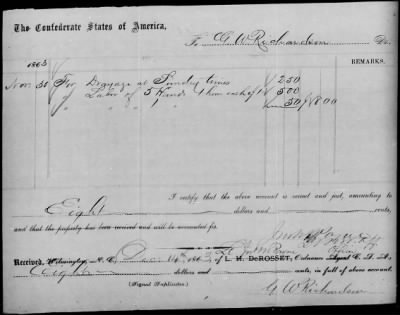 The Confederate States of America,
To G W Richardson Dr.
REMARKS.
1863
Nov 30 For Drayage at Sundry times 2 50
" Labor of 5 Hands 1 5 00
" " " 1 50 $8 00
I certify that the above account is correct and just, amounting to
Eight dollars and cents,
and that the property has been received and will be accounted for.
Received, Wilmington, N. C., Dec 14th 1863 of L. H. DeROSSET, Ordnance Agent C. S. A.,
Eight dollars and cents, in full of above account.
(Signed Duplicates.)
G W Richardson